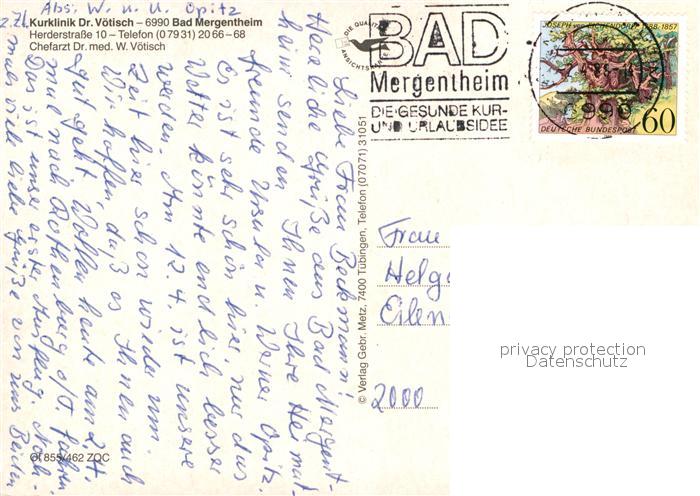 Abs. W. u. U. Opitz
Kurklinik Dr. Vötisch – 6990 Bad Mergentheim
Herderstraße 10 – Telefon (0 79 31) 20 66 – 68
Chefarzt Dr. med. W. Vötisch
z. Zt.
Liebe Frau Beckmann!
Herzliche Grüße aus Bad Mergent-
heim senden Ihnen Ihre Heimat-
freunde Ursula u. Werner Opitz.
Es ist sehr schön hier, nur das
Wetter könnte endlich besser
werden. Am 12.4. ist unsere
Zeit hier schon wieder um.
Wir hoffen, daß es Ihnen auch
gut geht. Wollen heute am 2.4.
mal nach Rothenburg o/T. fahren
Das ist unser erster Ausflug. Noch-
mals viele liebe Grüße von uns Beiden
Gf 855/462 ZQC
© Verlag Gebr. Metz, 7400 Tübingen, Telefon (07071) 31051
DIE QUALITÄTS
ANSICHTSKARTE
BAD
Mergentheim
DIE GESUNDE KUR-
UND URLAUBSIDEE
JOSEPH 1788-1857
6990
DEUTSCHE BUNDESPOST
60
Frau
Helg
Eilen
2000
privacy protection
Datenschutz